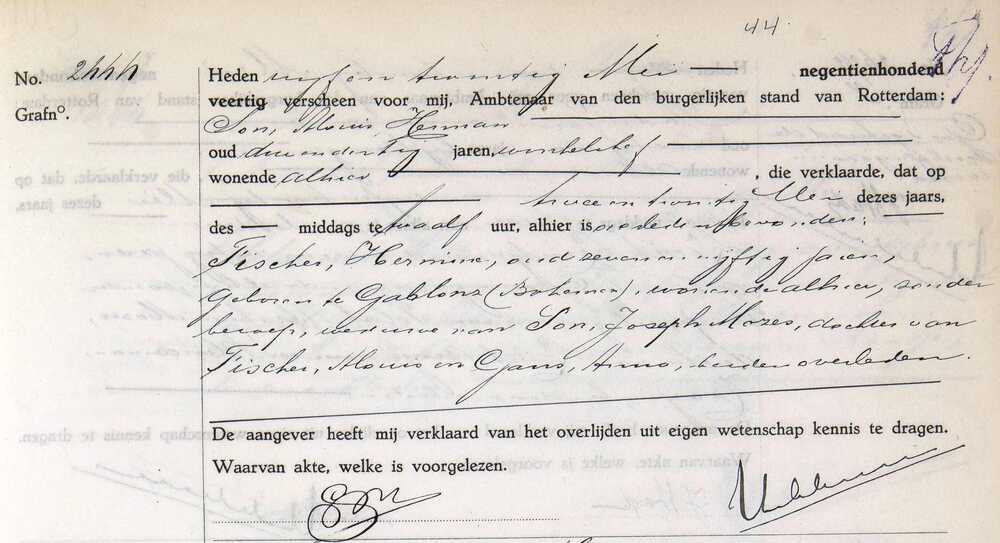 44.
No. 2444
Grafn°.
Heden vijf en twintig Mei negentienhonderd
veertig verscheen voor mij, Ambtenaar van den burgerlijken stand van Rotterdam:
Son, Alouis Herman
oud drie en dertig jaren, winkelchef
wonende alhier, die verklaarde, dat op
twee en twintig Mei dezes jaars,
des middags te twaalf uur, alhier is overleden bevonden:
Fischer, Hermine, oud zeven en vijftig jaren,
geboren te Gablonz (Bohemen), wonende alhier, zonder
beroep, weduwe van Son, Joseph Mozes, dochter van
Fischer, Alouis en Gans, Anna, beiden overleden.
De aangever heeft mij verklaard van het overlijden uit eigen wetenschap kennis te dragen.
Waarvan akte, welke is voorgelezen.
Son